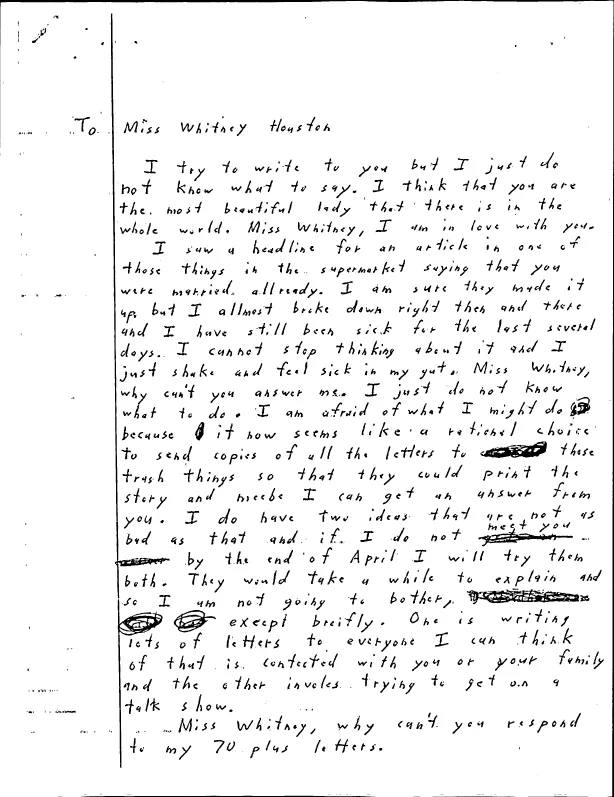 To Miss Whitney Houston
I try to write to you but I just do
not know what to say. I think that you are
the most beautiful lady that there is in the
whole world. Miss Whitney, I am in love with you.
I saw a headline for an article in one of
those things in the supermarket saying that you
were married allready. I am sure they made it
up, but I allmost broke down right then and there
and I have still been sick for the last several
days. I cannot stop thinking about it and I
just shake and feel sick in my gut. Miss Whitney,
why can't you answer me. I just do not know
what to do. I am afraid of what I might do
because it now seems like a rational choice
to send copies of all the letters to these
trash things so that they could print the
story and meebe I can get an answer from
you. I do have two ideas that are not as
bad as that and if I do not meet you
by the end of April I will try them
both. They would take a while to explain and
so I am not going to bother,
except breifly. One is writing
lots of letters to everyone I can think
of that is contected with you or your family
and the other involes trying to get on a
talk show.
Miss Whitney, why can't you respond
to my 70 plus letters.